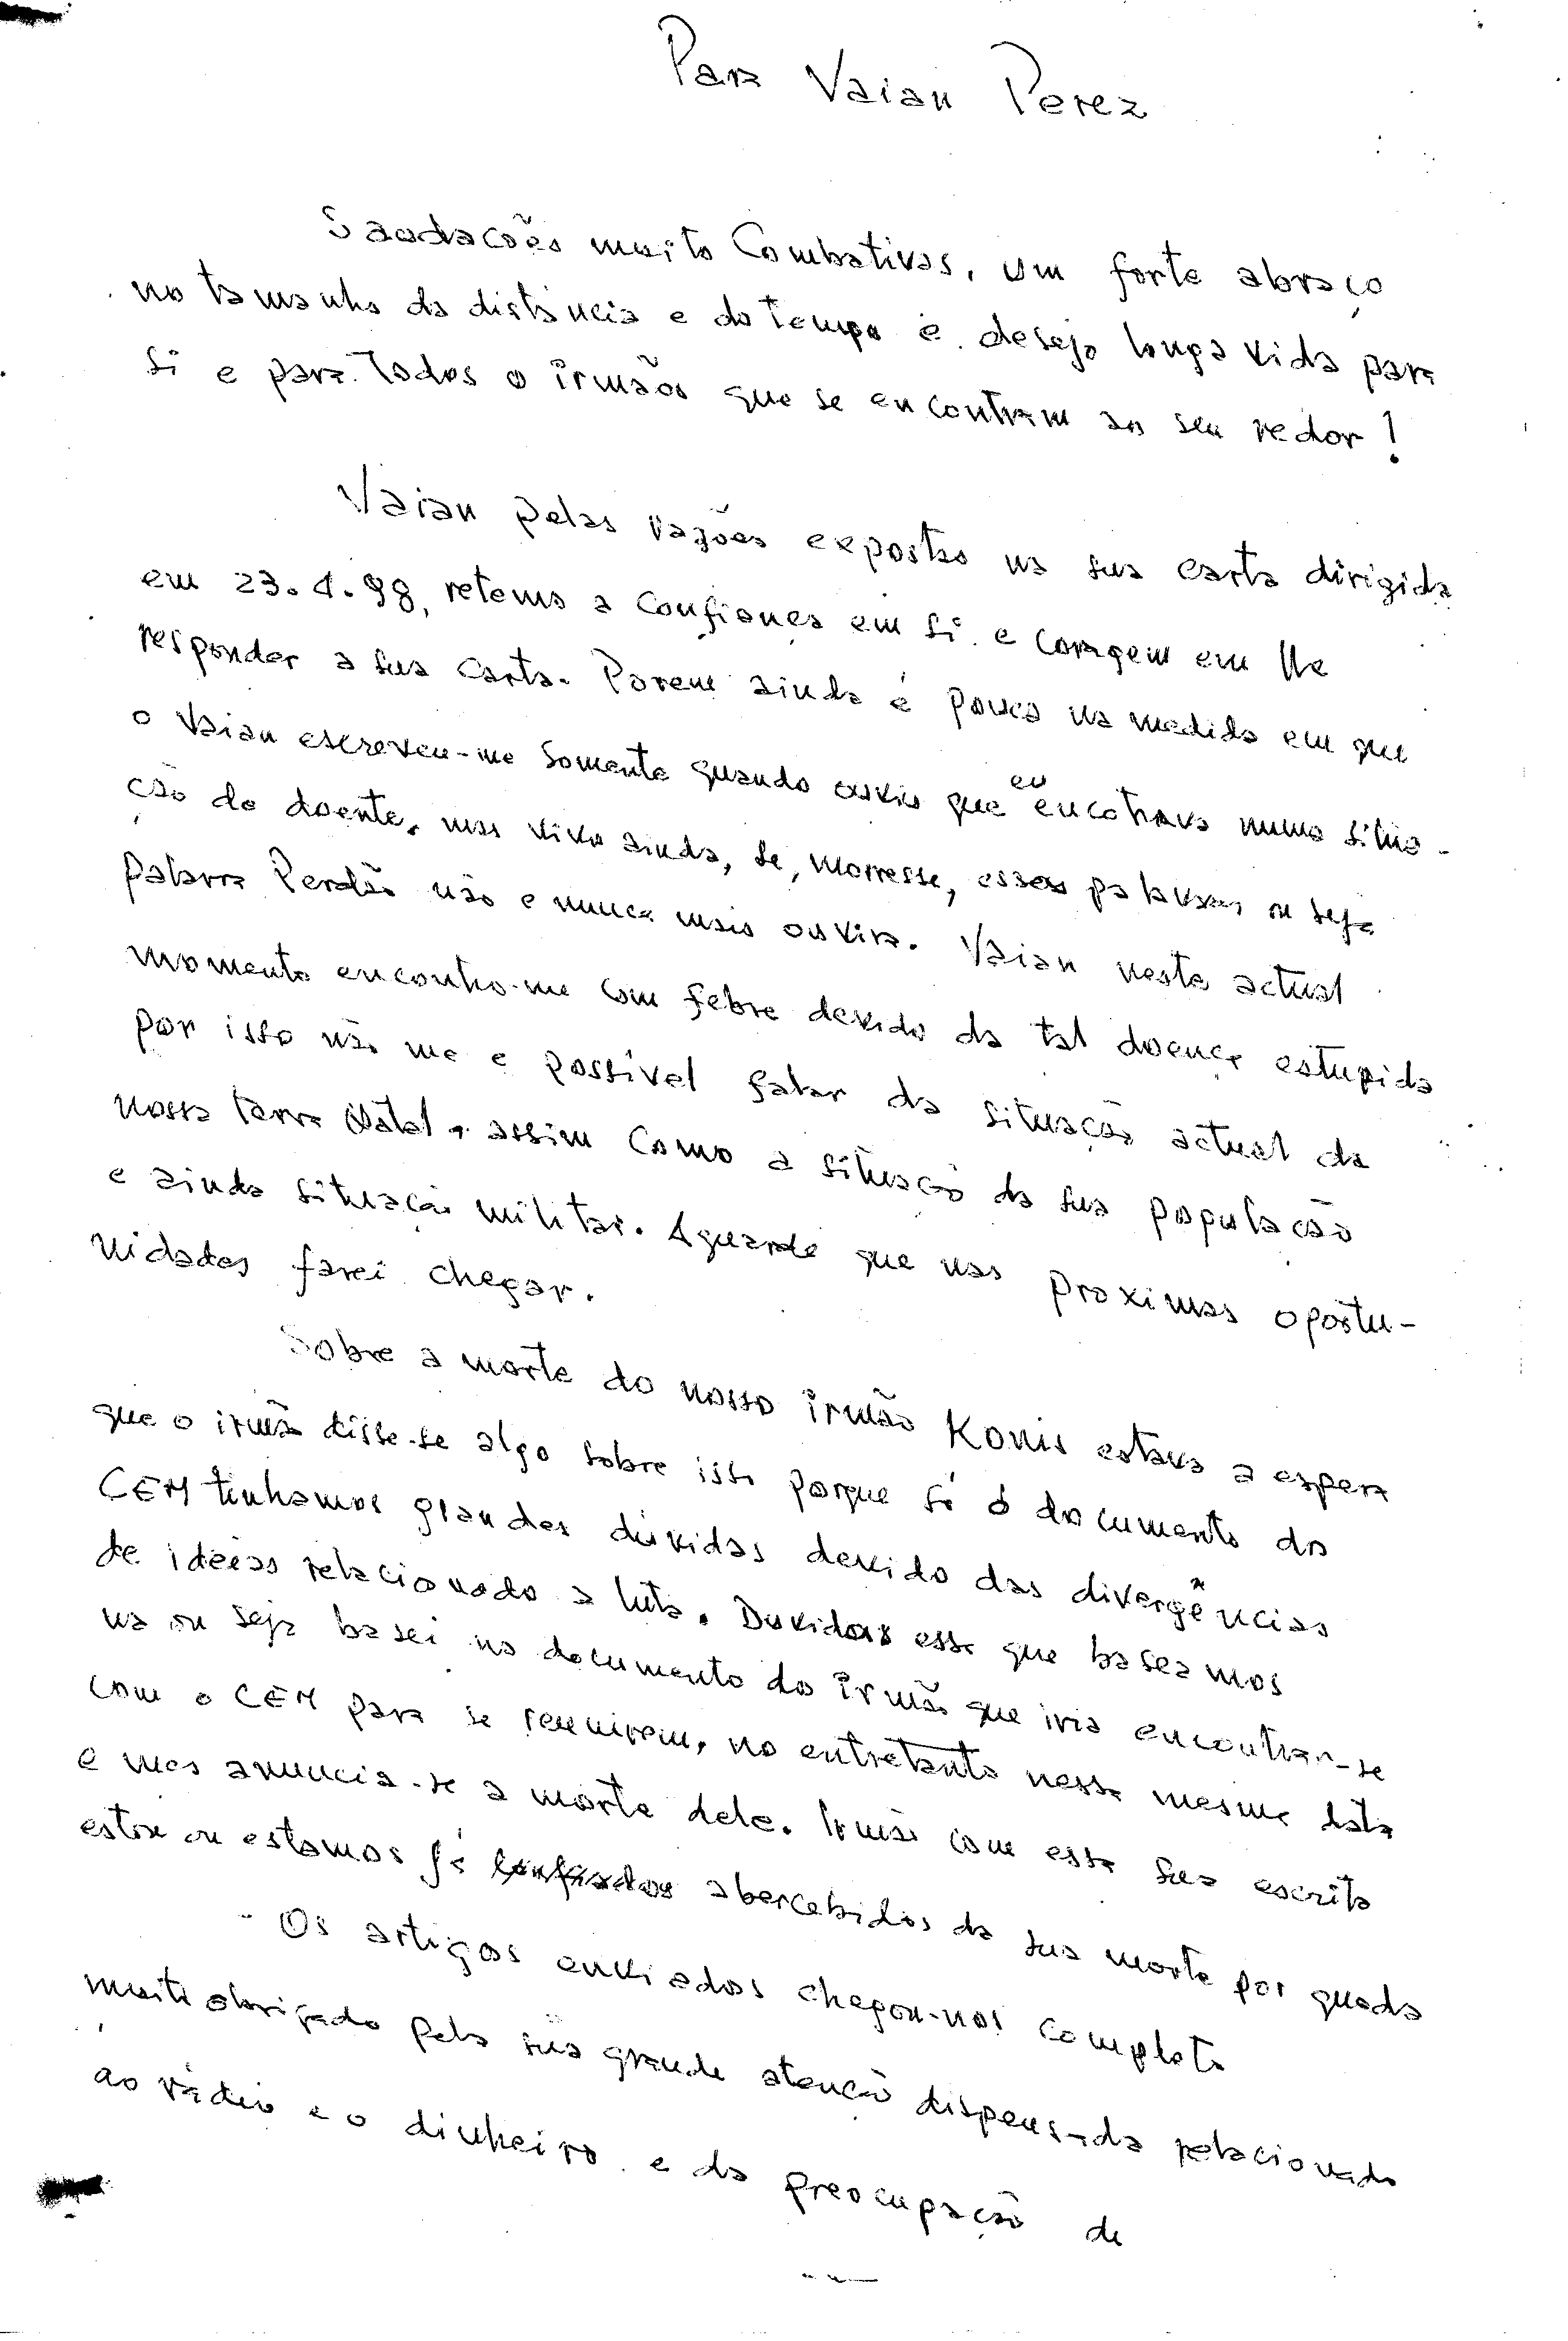 Para Vaian Perez
Saudacões muito Combativas, um forte abraço
no tamanho da distância e do tempo e desejo longa vida para
si e para Todos o irmãos que se encontram ao seu redor!
Vaian pelas razões expostas na sua carta dirigida
em 23.4.98, retenho a confiança em si e coragem em lhe
responder a sua carta. Porem ainda é pouca na medida em que
o Vaian escreveu-me somente quando ouviu que eu encotrava numa situa-
ção de doente, mas vivo ainda, se, morresse, essas palavras ou seja
palavra Perdão não e nunca mais ouvira. Vaian neste actual
momento encontro-me com febre devido da tal doença estupida
por isso não me e possível falar da situação actual da
nossa terra Natal, assim como a situação da sua população
e ainda situação militar. Aguarde que nas proximas oportu-
nidades farei chegar.
Sobre a morte do nosso irmão Konis estava a espera
que o irmão disse-se algo sobre isso porque só o documento do
CEM tinhamos grandes dúvidas devido das divergências
de ideias relacionado a luta. Duvidas esse que baseamos
na ou seja basei no documento do irmão que iria encontrar-se
com o CEM para se reunirem, no entretanto nessa mesma data
e mes anuncia-se a morte dele. Irmão com essa sua escrita
estou ou estamos já abercebidos da sua morte por queda
- Os artigos enviados chegou-nos completo
muito obrigado pela sua grande atenção dispensada relacionado
ao rádio e o dinheiro e da preocupação de